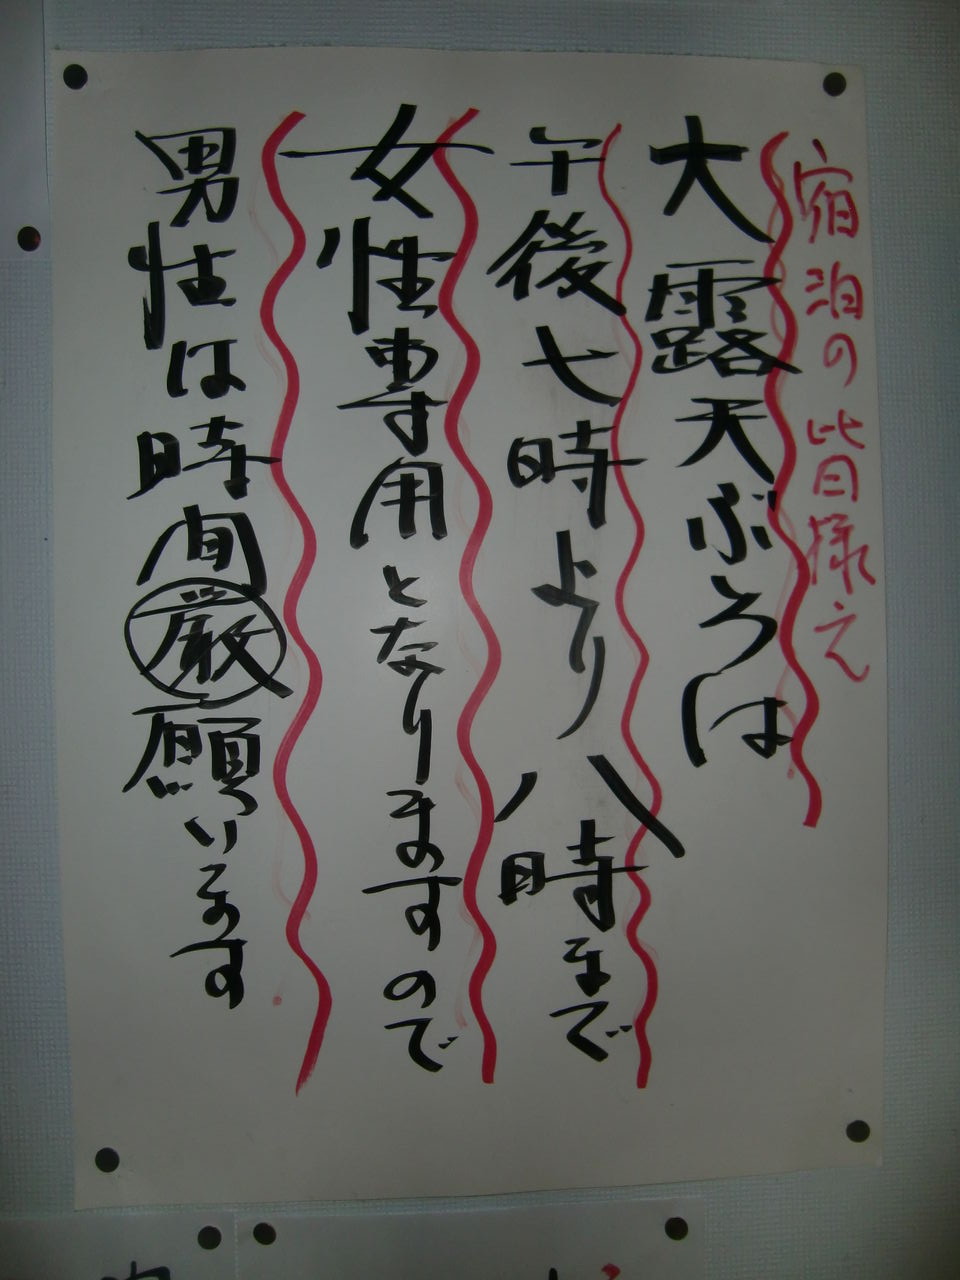 宿泊の皆様え
大露天ぶろは
午後七時より八時まで
女性専用となりますので
男性は時間厳願います